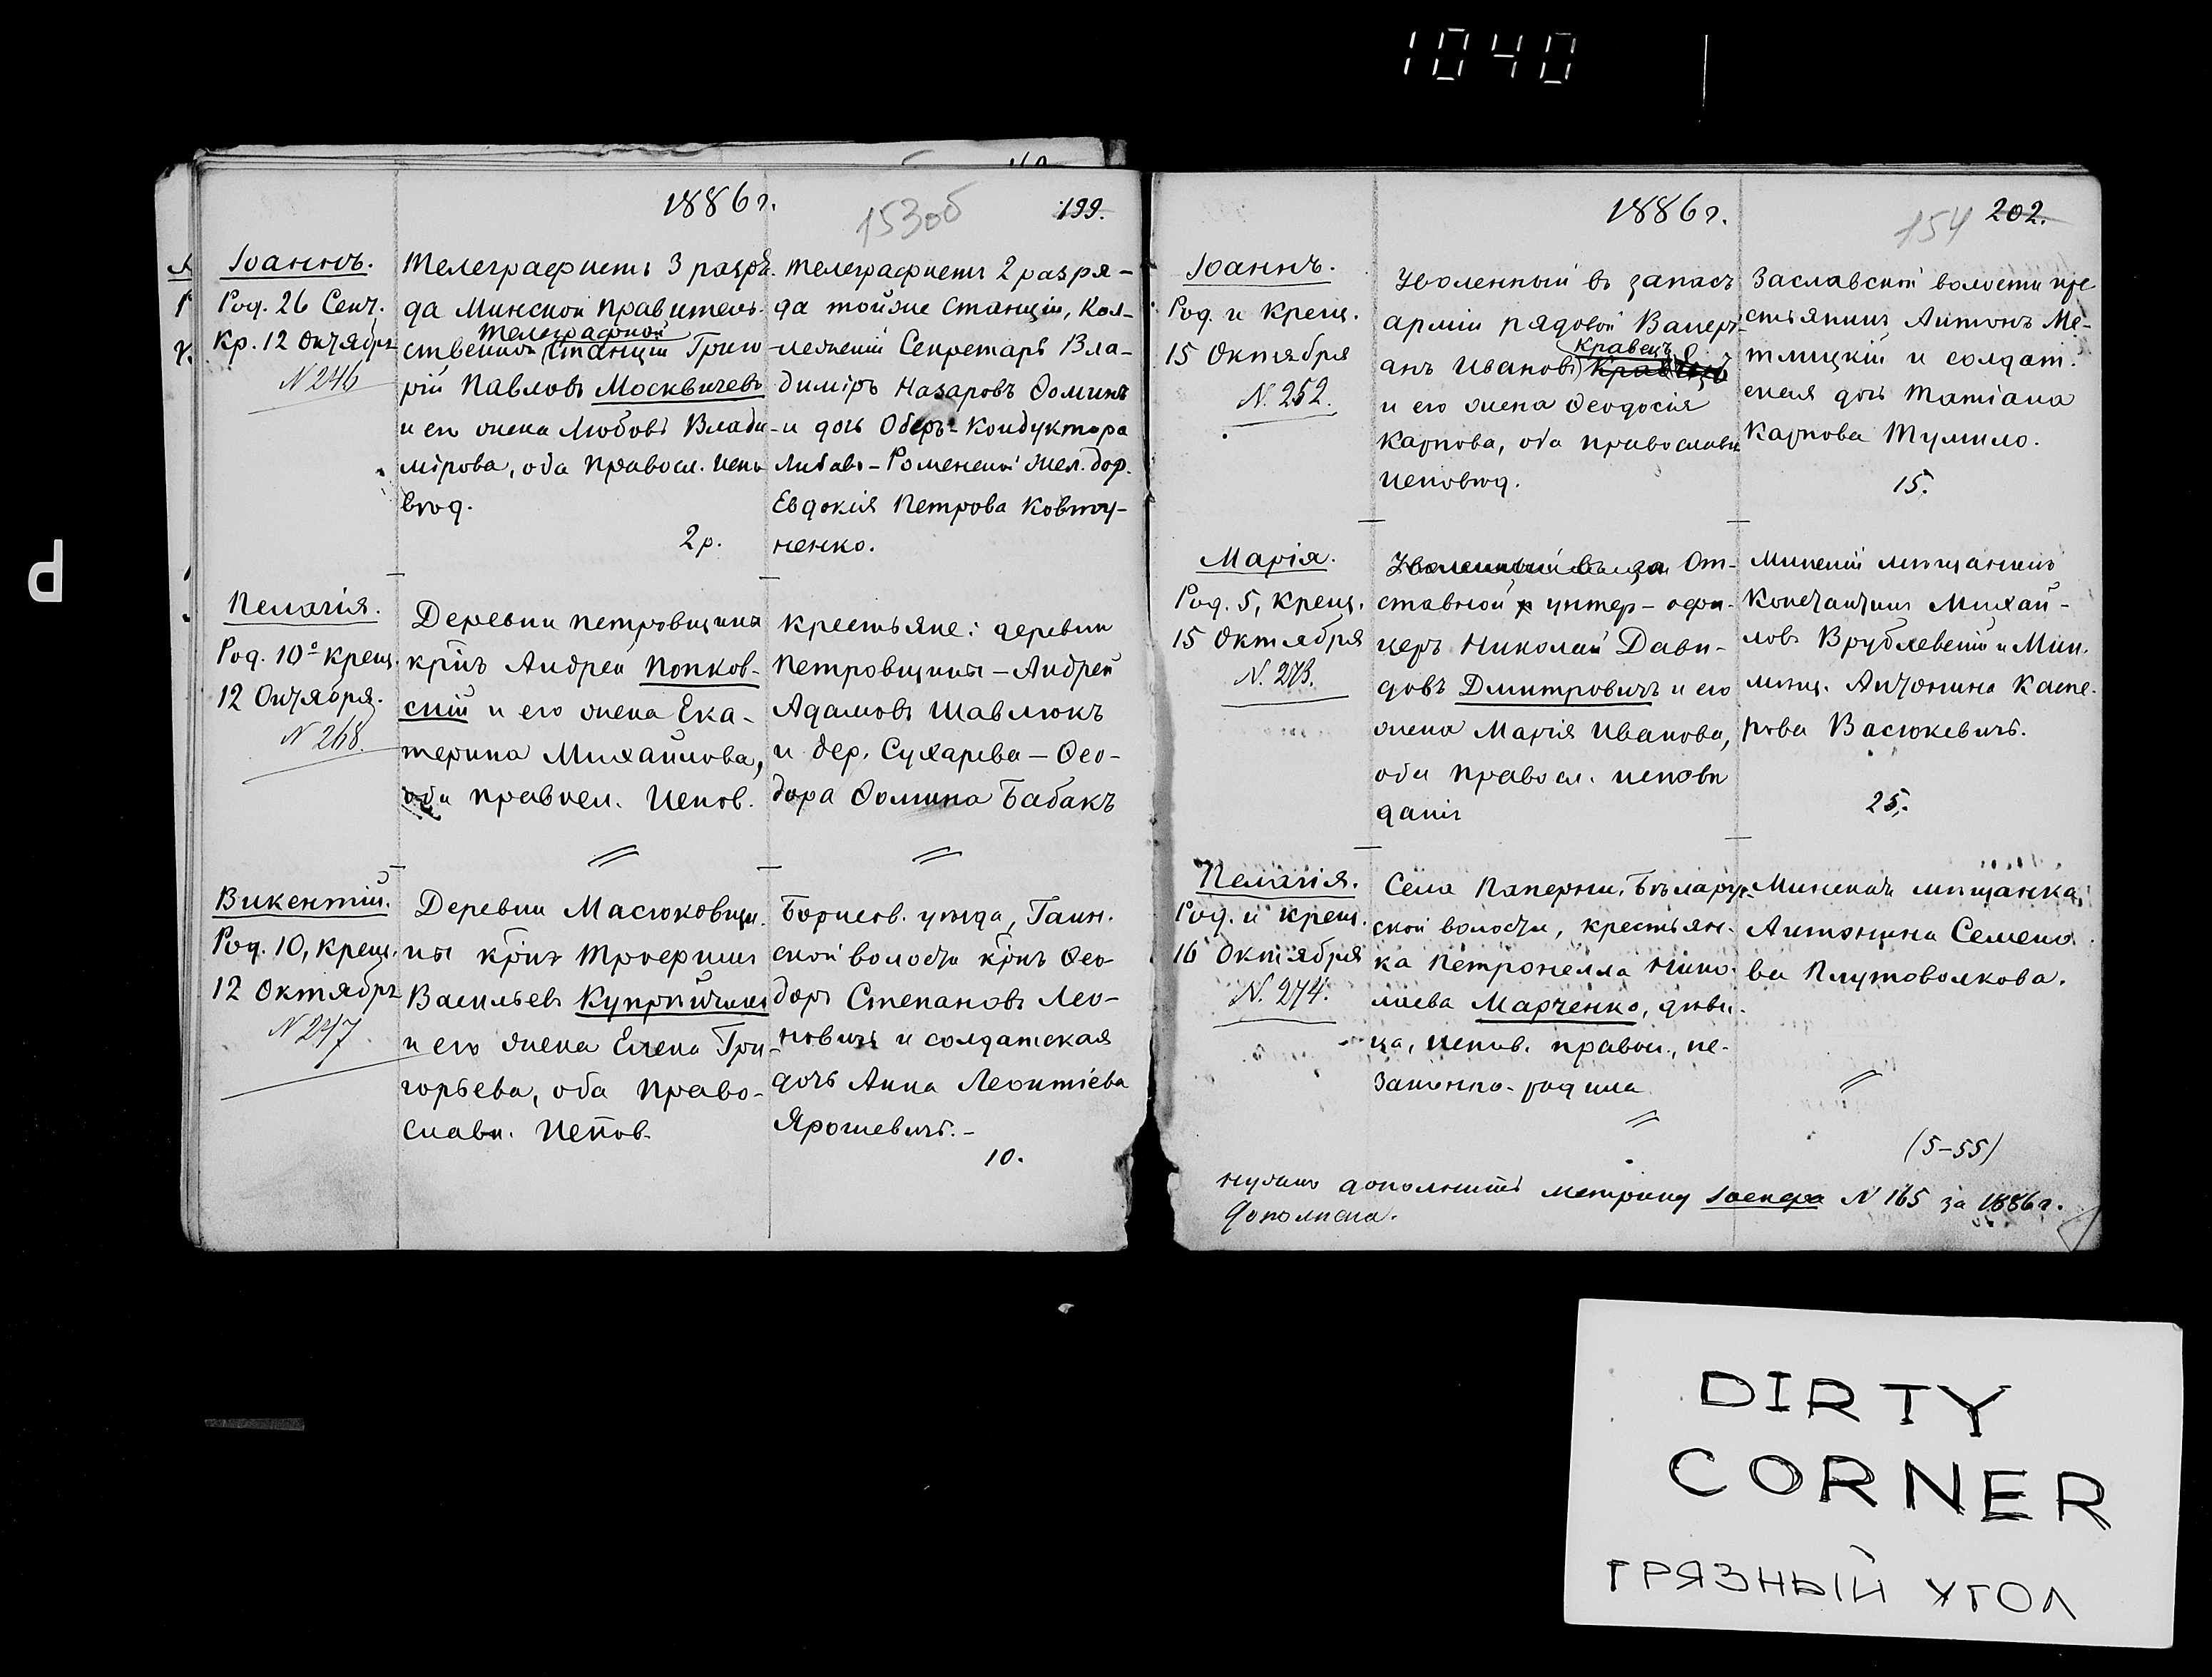 1040
1886 г.
153об
199.
Іоаннъ.
Род. 26 Сент.
Кр. 12 Октября
N 246
Телеграфистъ 3 разря-
да Минской Правитель-
Телеграфной
ственной Станціи Григо
рій Павловъ Москвичевъ
и его жена Любовь Влади-
мірова, оба Правосл. Испо
вѣд.
2 р.
Телеграфистъ 2 разря-
да тойже Станціи, Кол-
лежскій Секретарь Вла-
диміръ Назаровъ Ѳоминъ
и дочь Оберъ-Кондуктора
Либаво-Роменской жел. дор.
Евдокія Петрова Ковту-
ненко.
Пелагія.
Род. 10 Крещ.
12 Октября.
N 268.
Деревни Петровщина
кр̃нъ Андрей Попков-
скій и его жена Ека-
терина Михайлова,
оба правосл. Испов.
Крестьяне: деревни
Петровщины - Андрей
Адамовъ Шавлюкъ
и дер. Сухарева - Ѳео-
дора Ѳомина Бабакъ
Викентій.
Род. 10, Крещ.
12 Октября
N 247
Деревни Масюковщи-
ны кр̃нъ
Васильевъ
и его жена Елена Гри-
горьева, оба Право-
славн. Испов.
Борисов. уѣзда, Гаин-
ской волости кр̃нъ Ѳео
доръ Степановъ Лео-
новичъ и солдатская
дочь Анна Леонтіева
Ярошевичъ. -
10.
1886 г.
154
202.
Іоаннъ.
Род. и Крещ.
15 Октября
N. 252.
Уволенный въ запасъ
арміи рядовой Валері-
Кравецъ
анъ Ивановъ Кравецъ
и его жена Ѳеодосія
Карпова, оба православн
Исповѣд.
Заславской волости кре
стьянинъ Антонъ Ме-
тлицкій и солдат-
ская дочь Татіана
Карпова Тумило.
15.
Марія.
Род. 5, Крещ.
15 Октября
N. 273.
Уволенный въ за От-
ставной унтер-офи-
церъ Николай Дави-
довъ Дмитровичъ и его
жена Марія Иванова,
оба Правосл. исповѣ
данія
Минскій мѣщанинъ
Константинъ Михай-
ловъ Врублевскій и Мин.
мѣщ. Антонина Каспе-
рова Васюкевичъ.
25.
Пелагія.
Род. и крещ.
16 Октября
N. 274.
Села Паперни, Бѣлоруч-
ской волости, крестьян-
ка Петронелла Нико-
лаева Марченко, дѣви-
ца, испов. правосл., не-
законно-родила
Минская мѣщанка
Антонина Семено
ва Плутоволкова.
(5-55)
Нужно дополнить метрику Іосифа N 165 за 1886 г.
Дополнена.
DIRTY
CORNER
ГРЯЗНЫЙ УГОЛ